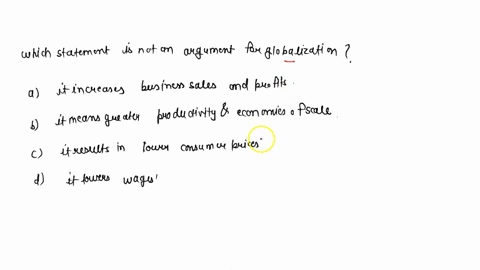 which statement is not an argument for globalization ?
a) it increases business sales and profits.
b) it means greater productivity & economies of scale.
c) it results in lower consumer prices.
d) it lowers wages.